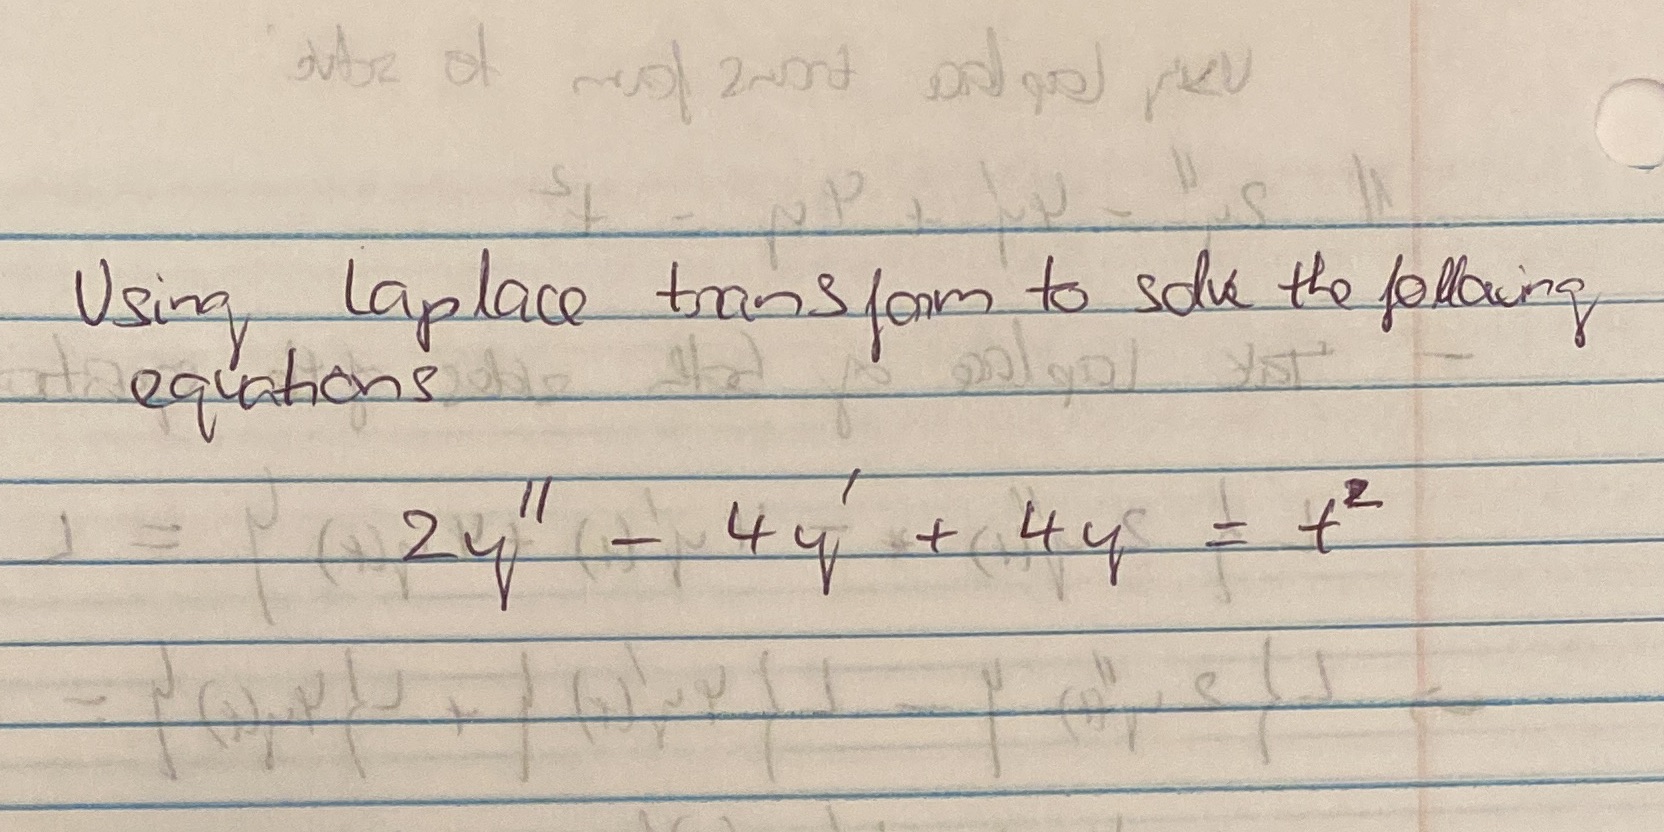 Using Laplace transform to solve the following
equations
2y'' - 4y' + 4y = t²